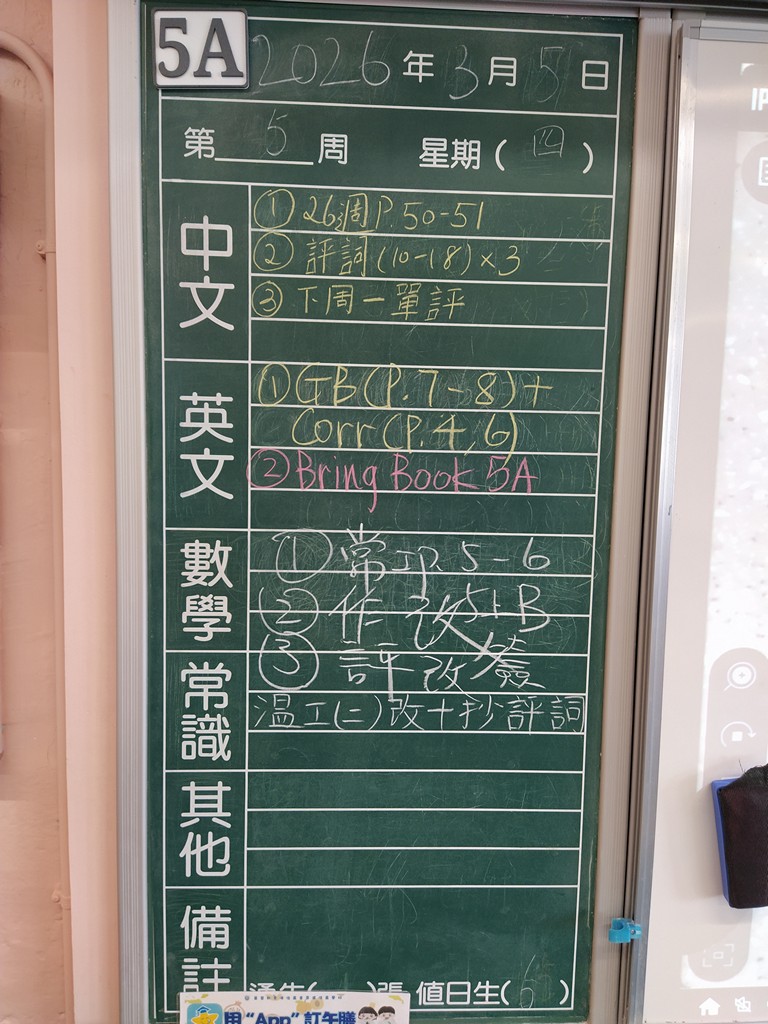 5A 2026年3月5日
第5周 星期(四)
中文
① 26週P.50-51
② 評詞(10-18)×3
③ 下周一單評
英文
① GB(P.7-8)+
Corr(P.4,6)
② Bring Book 5A
數學
① 常工P.5-6
② 作改5上B
③ 評改簽
常識
溫工(二)改+抄評詞
其他
備註
值日生(6)
用“App”訂午膳
IP